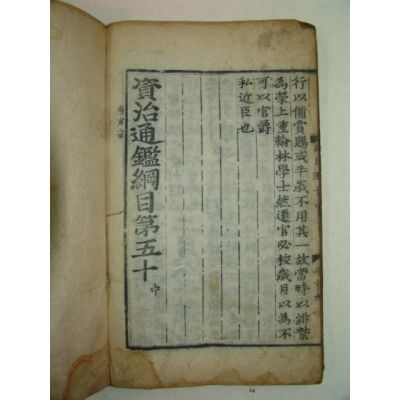 行以備賞賜或半歲不用其一故當時以緋紫
為榮上重翰林學士然遷官必校歲月以為不
可以官爵
私近臣也
資治通鑑綱目第五十 中